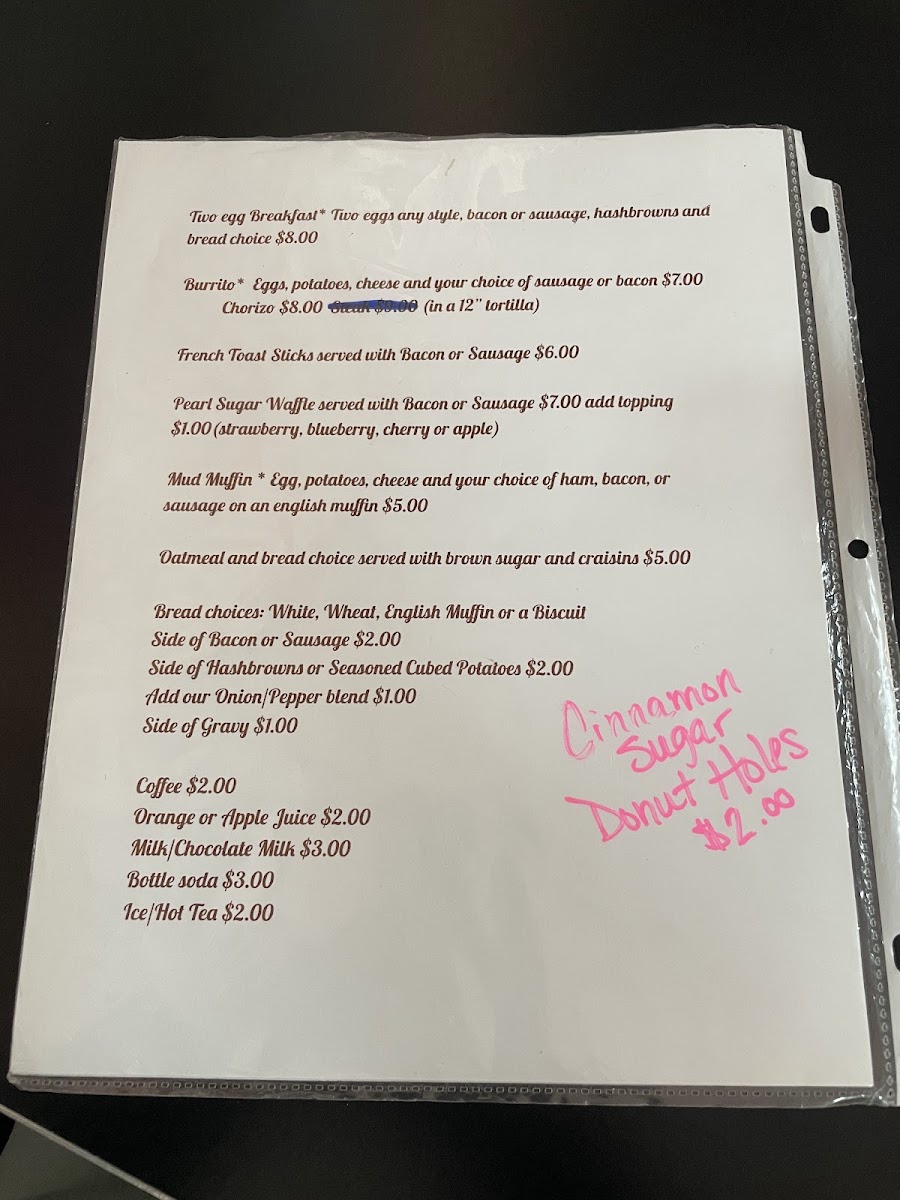 Two egg Breakfast* Two eggs any style, bacon or sausage, hashbrowns and
bread choice $8.00
Burrito* Eggs, potatoes, cheese and your choice of sausage or bacon $7.00
Chorizo $8.00 Steak $9.00 (in a 12" tortilla)
French Toast Sticks served with Bacon or Sausage $6.00
Pearl Sugar Waffle served with Bacon or Sausage $7.00 add topping
$1.00(strawberry, blueberry, cherry or apple)
Mud Muffin * Egg, potatoes, cheese and your choice of ham, bacon, or
sausage on an english muffin $5.00
Oatmeal and bread choice served with brown sugar and craisins $5.00
Bread choices: White, Wheat, English Muffin or a Biscuit
Side of Bacon or Sausage $2.00
Side of Hashbrowns or Seasoned Cubed Potatoes $2.00
Add our Onion/Pepper blend $1.00
Side of Gravy $1.00
Cinnamon
Sugar
Donut Holes
$2.00
Coffee $2.00
Orange or Apple Juice $2.00
Milk/Chocolate Milk $3.00
Bottle soda $3.00
Ice/Hot Tea $2.00